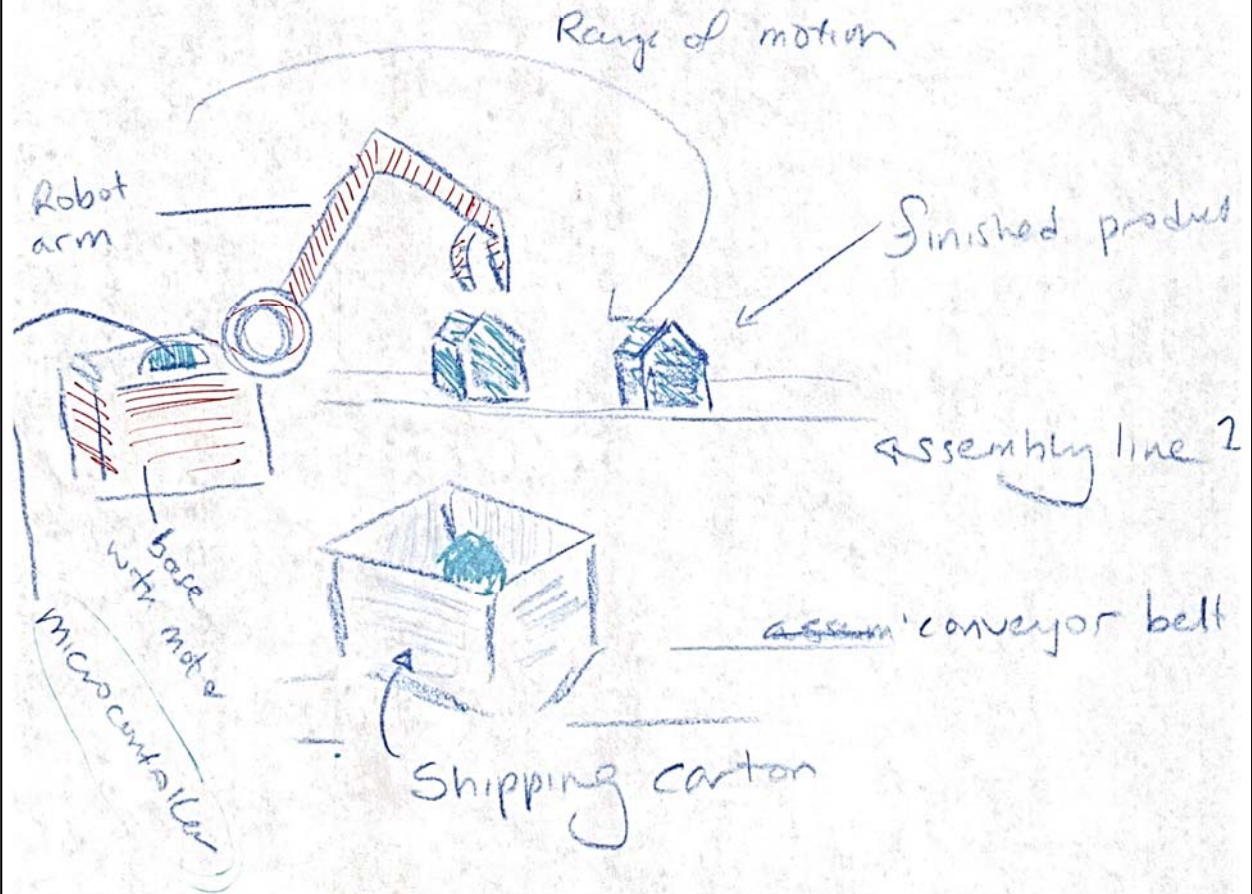 Range of motion
Robot
arm
finished product
assembly line 2
base
with motor
microcontroller
assem conveyor belt
Shipping carton